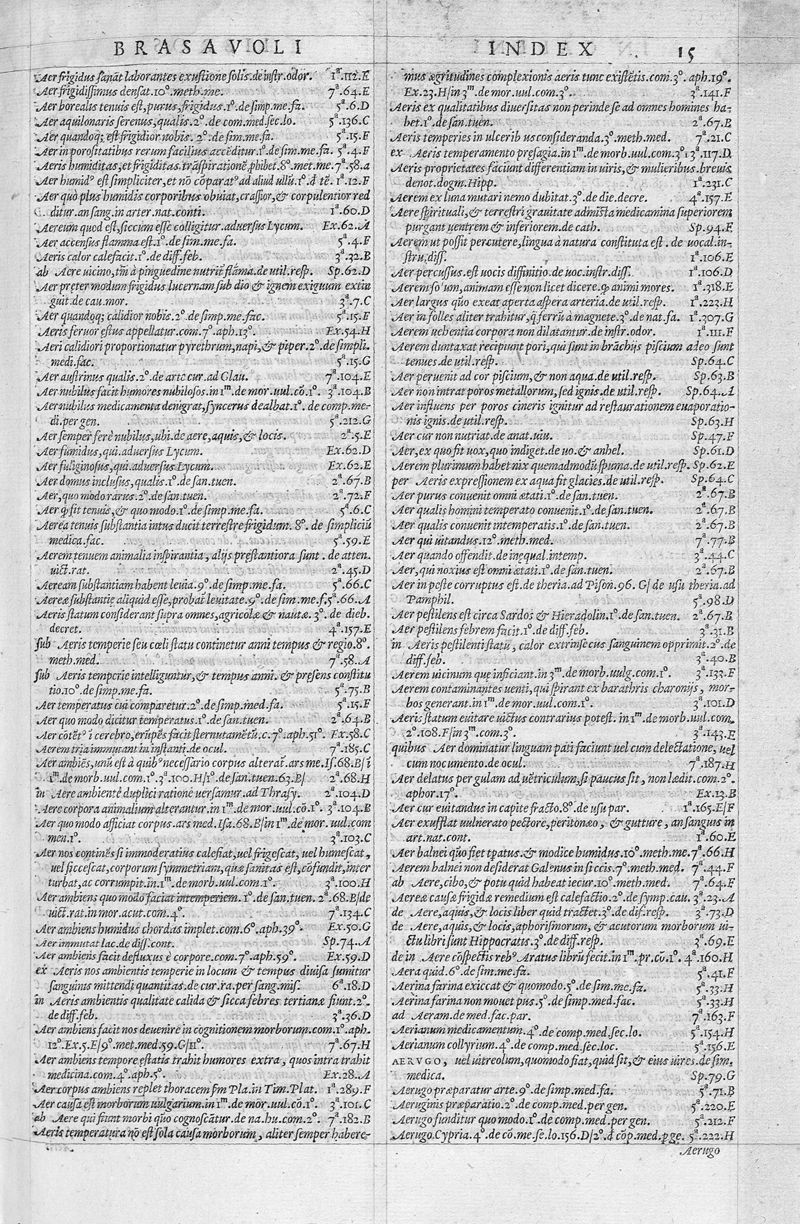 BRASAVOLI
INDEX 15
Aer frigidus sanat laborantes exustione solis. de instr. odor. 1ª.112.E
Aer frigidissimus densat. 10º. meth. me. 7ª.64.E
Aer borealis tenuis est, purus, frigidus. 1º. de simp. me. fa. 5ª.6.D
Aer aquilonaris serenus, qualis. 2º. de com. med. sec. lo. 5ª.136.C
Aer quandoq; est frigidior nobis. 2º. de sim. me. fa. 5ª.15.F
Aer in porositatibus rerum facilius accẽditur. 1º. de sim. me. fa. 5ª.4.F
Aeris humiditas, et frigiditas. trãspirationẽ, phibet. 8º. met. me. 7ª.58.a
Aer humidº est simpliciter, et nõ cõparatº ad aliud ullũ. 1º. d tẽ. 1ª.12.F
Aer quò plus humidis corporibus obuiat, crassior, & corpulentior red
ditur. an sang. in arter. nat. conti. 1ª.60.D
Aereum quod est, siccum esse colligitur. aduersus Lycum. Ex.62.A
Aer accensus flamma est. 1º. de sim. me. fa. 5ª.4.F
Aeris calor calefacit. 1º. de diff. feb. 3ª.32.B
ab Aere uicino, tm̃ à pinguedine nutrit flãma. de util. resp. Sp.62.D
Aer preter modum frigidus lucernam sub dio & ignem exiguum extin
guit. de cau. mor. 3ª.7.C
Aer quandoq; calidior nobis. 2º. de simp. me. fac. 5ª.15.F
Aeris feruor æstus appellatur. com. 7º. aph. 13º. Ex.54.H
Aeri calidiori proportionatur pyrethrum, napi, & piper. 2º. de simpli.
medi. fac. 5ª.15.G
Aer austrinus qualis. 2º. de arte cur. ad Glau. 7ª.104.E
Aer nubilus facit humores nubilosos. in 1m. de mor. uul. cõ. 1º. 3ª.104.B
Aer nubilus medicamenta denigrat, syncerus dealbat. 1º. de comp. me-
di. per gen. 5ª.212.G
Aer semper ferè nubilus, ubi. de aere, aquis, & locis. 2ª.5.E
Aer fumidus, qui. aduersus Lycum. Ex.62.D
Aer fuliginosus, qui. aduersus Lycum. Ex.62.E
Aer domus inclusus, qualis. 1º. de san. tuen. 2ª.67.B
Aer, quo modo rarus. 2º. de san. tuen. 2ª.72.F
Aer q̃ sit tenuis, & quo modo. 1º. de simp. me. fa. 5ª.6.C
Aerea tenuis substantia intus ducit terrestre frigidum. 8º. de simpliciũ
medica. fac. 5ª.59.E
Aerem tenuem animalia inspirantia, alijs prestantiora sunt. de atten.
uict. rat. 2ª.45.D
Aeream substantiam habent leuia. 9º. de simp. me. fa. 5ª.66.C
Aereæ substantiæ aliquid esse, probat leuitate. 9º. de sim. me. f. 5ª.66.A
Aeris statum considerant supra omnes, agricolæ & nautæ. 3º. de dieb.
decret. 4ª.157.E
sub Aeris temperie seu cœli statu continetur anni tempus & regio. 8º.
meth. med. 7ª.58.A
sub Aeris temperie intelliguntur, & tempus anni. & presens constitu
tio. 10º. de simp. me. fa. 5ª.75.B
Aer temperatus cui comparetur. 2º. de simp. med. fa. 5ª.15.F
Aer quo modo dicitur temperatus. 1º. de san. tuen. 2ª.64.B
Aer cõtẽtº i cerebro, erũpẽs facit sternutamẽtũ. c. 7º. aph. 51º. Ex.58.C
Aerem tria immutant in instanti. de ocul. 7ª.185.C
Aer ambiẽs, unũ est à quibº necessario corpus alterat. ars me. Is. 68.B/ i
1m. de morb. uul. com. 1º. 3ª.100.H/ 1º. de san. tuen. 63.B/ 2ª.68.H
in Aere ambientẽ duplici ratione uersamur. ad Thrasy. 2ª.104.D
Aere corpora animalium alterantur. in 1m. de mor. uul. cõ. 1º. 3ª.104.B
Aer quo modo afficiat corpus. ars med. Isa. 68.B/ in 1m. de mor. uul. com
men. 1º. 3ª.103.C
Aer nos continẽs si immoderatius calefiat, uel frigescat, uel humescat,
uel siccescat, corporum symmetriam, quæ sanitas est, cõfundit, inter
turbat, ac corrumpit. in. 1m. de morb. uul. com. 1º. 3ª.100.H
Aer ambiens quo modo faciat intemperiem. 1º. de san. tuen. 2ª.68.B/ de
uict. rat. in mor. acut. com. 4º. 7ª.134.C
Aer ambiens humidus chordas implet. com. 6º. aph. 39º. Ex.50.G
Aer immutat lac. de diss. cont. Sp.74.A
Aer ambiens facit defluxus è corpore. com. 7º. aph. 59º. Ex.59.D
ex Aeris nos ambientis temperie in locum & tempus diuisa sumitur
sanguinis mittendi quantitas. de cur. ra. per sang. mis. 6ª.18.D
in Aeris ambientis qualitate calida & sicca febres tertianæ fiunt. 2º.
de diff. feb. 3ª.36.D
Aer ambiens facit nos deuenire in cognitionem morborum. com. 1º. aph.
12º. Ex.5.E/ 9º. met. med. 59.G/ 11º. 7ª.67.H
Aer ambiens tempore æstatis trahit humores extra, quos intra trahit
medicina. com. 4º. aph. 5º. Ex.28.A
Aer corpus ambiens replet thoracem fm Pla. in Tim. Plat. 1ª.289.F
Aer causa est morborum uulgarium. in 1m. de mor. uul. cõ. 1º. 3ª.101.C
ab Aere qui fiunt morbi quo cognoscãtur. de na. hu. com. 2º. 7ª.182.B
Aeris temperatura nõ est sola causa morborum, aliter semper habere-
mus ægritudines complexionis aeris tunc existẽtis. com. 3º. aph. 19º.
Ex.23.H/ in 3m. de mor. uul. com. 3º. 3ª.141.F
Aeris ex qualitatibus diuersitas non perinde se ad omnes homines ha-
bet. 1º. de san. tuen. 2ª.67.B
Aeris temperies in ulceribus consideranda. 3º. meth. med. 7ª.21.C
ex Aeris temperamento presagia. in 1m. de morb. uul. com. 3º. 3ª.117.D
Aeris proprietates faciunt differentiam in uiris, & mulieribus. breuis
denot. dogm. Hipp. 1ª.231.C
Aerem ex luna mutari nemo dubitat. 3º. de die. decre. 4ª.157.E
Aere spirituali, & terrestri grauitate admista medicamina superiorem
purgant uentrem & inferiorem. de cath. Sp.94.E
Aerem ut possit percutere, lingua à natura constituta est. de uocal. in-
stru. diss. 1ª.106.E
Aer percussus. est uocis diffinitio. de uoc. instr. diss. 1ª.106.D
Aerem solum, animam esse non licet dicere. q̃ animi mores. 1ª.318.E
Aer largus quo exeat aperta aspera arteria. de util. resp. 1ª.223.H
Aer in folles aliter trahitur, q̃ ferrũ à magnete. 3º. de nat. fa. 1ª.307.G
Aerem uehentia corpora non dilatantur. de instr. odor. 1ª.111.F
Aerem duntaxat recipiunt pori, qui sunt in brãchijs piscium adeo sunt
tenues. de util. resp. Sp.64.C
Aer peruenit ad cor piscium, & non aqua. de util. resp. Sp.63.B
Aer non intrat poros metallorum, sed ignis. de util. resp. Sp.64.A
Aer influens per poros cineris ignitur ad restaurationem euaporatio-
nis ignis. de util. resp. Sp.63.H
Aer cur non nutriat. de anat. uiu. Sp.47.F
Aer, ex quo fit uox, quo indiget. de uo. & anhel. Sp.61.D
Aerem plurimum habet nix quemadmodũ spuma. de util. resp. Sp.62.E
per Aeris expressionem ex aqua fit glacies. de util. resp. Sp.64.C
Aer purus conuenit omni ætati. 1º. de san. tuen. 2ª.67.B
Aer qualis homini temperato conuenit. 1º. de san. tuen. 2ª.67.B
Aer qualis conuenit intemperatis. 1º. de san. tuen. 2ª.67.B
Aer qui uitandus. 12º. meth. med. 7ª.77.B
Aer quando offendit. de inæqual. intemp. 3ª.44.C
Aer, qui noxius est omni ætati. 1º. de san. tuen. 2ª.67.B
Aer in peste corruptus est. de theria. ad Pison. 96.G/ de usu theria. ad
Pamphil. 5ª.98.D
Aer pestilens est circa Sardos & Hieradolin. 1º. de san. tuen. 2ª.67.B
Aer pestilens febrem facit. 1º. de diff. feb. 3ª.31.B
in Aeris pestilenti statu, calor extrinsecus sanguinem opprimit. 2º. de
diff. feb. 3ª.40.B
Aerem uicinum que inficiant. in 3m. de morb. uulg. com. 1º. 3ª.133.F
Aerem contaminantes uenti, qui spirant ex barathris charonijs, mor-
bos generant. in 1m. de mor. uul. com. 1º. 3ª.101.D
Aeris statum euitare uictus contrarius potest. in 1m. de morb. uul. com.
2º. 108.F/ in 3m. com. 3º. 3ª.143.E
quibus Aer dominatur linguam pati faciunt uel cum delectatione, uel
cum nocumento. de ocul. 7ª.187.H
Aer delatus per gulam ad uẽtriculum, si paucus sit, non lædit. com. 2º.
aphor. 17º. Ex.13.B
Aer cur euitandus in capite fracto. 8º. de usu par. 1ª.165.E/F
Aer exufflat uulnerato pectore, peritonæo, & gutture, an sanguis in
art. nat. cont. 1ª.60.E
Aer balnei quo fiet tpatus. & modice humidus. 10º. meth. me. 7ª.66.H
Aerem balnei non desiderat Galenus in siccis. 7º. meth. med. 7ª.44.F
ab Aere, cibo, & potu quid habeat iecur. 10º. meth. med. 7ª.64.F
Aereæ causæ frigidæ remedium est calefactio. 2º. de symp. cau. 3ª.23.A
de Aere, aquis, & locis liber quid tractet. 3º. de dif. resp. 3ª.73.D
de Aere, aquis, & locis, aphorismorum, & acutorum morborum ui-
ctu libri sunt Hippocratis. 3º. de diff. resp. 3ª.69.E
de in Aere cõspectis rebº Aratus librũ fecit. in 1m. pr. cõ. 1º. 4ª.160.H
Aera quid. 6º. de sim. me. fa. 5ª.41.F
Aerina farina exiccat & quomodo. 5º. de sim. me. fa. 5ª.33.H
Aerina farina non mouet pus. 5º. de simp. med. fac. 5ª.33.H
ad Aeram. de med. fac. par. 7ª.163.F
Aerianum medicamentum. 4º. de comp. med. sec. lo. 5ª.154.H
Aerianum collyrium. 4º. de comp. med. sec. loc. 5ª.156.E
AERVGO, uel uitreolum, quomodo fiat, quid sit, & eius uires. de sim.
medica. Sp.79.G
Aerugo præparatur arte. 9º. de simp. med. fa. 5ª.71.B
Aeruginis præparatio. 2º. de comp. med. per gen. 5ª.220.E
Aerugo funditur quo modo. 1º. de comp. med. per gen. 5ª.212.F
Aerugo. Cypria. 4º. de cõ. me. se. lo. 156.D/ 2º. d cõp. med. p ge. 5ª.222.H
Aerugo